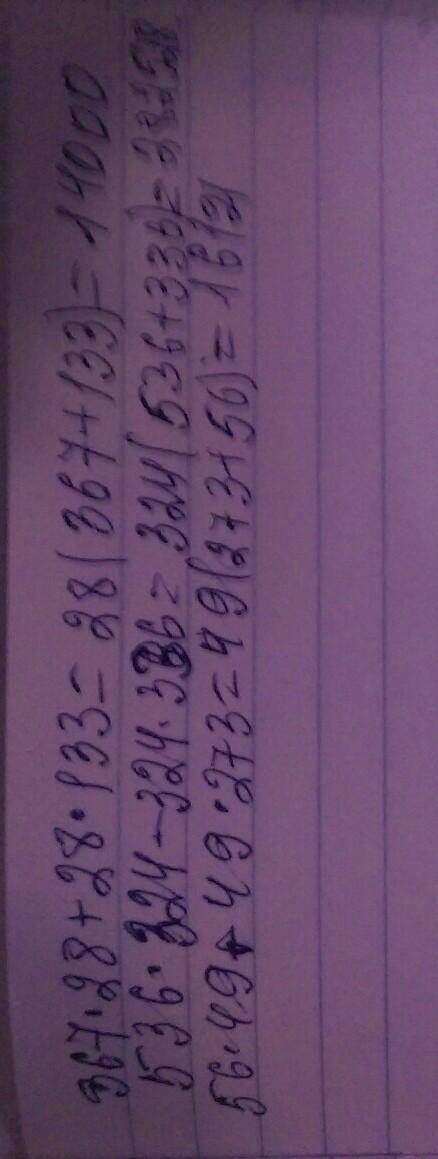 367·28+28·133=28(367+133)=14000
536·324-324·336=324(536+336)=
56·49+49·273=49(273+56)=